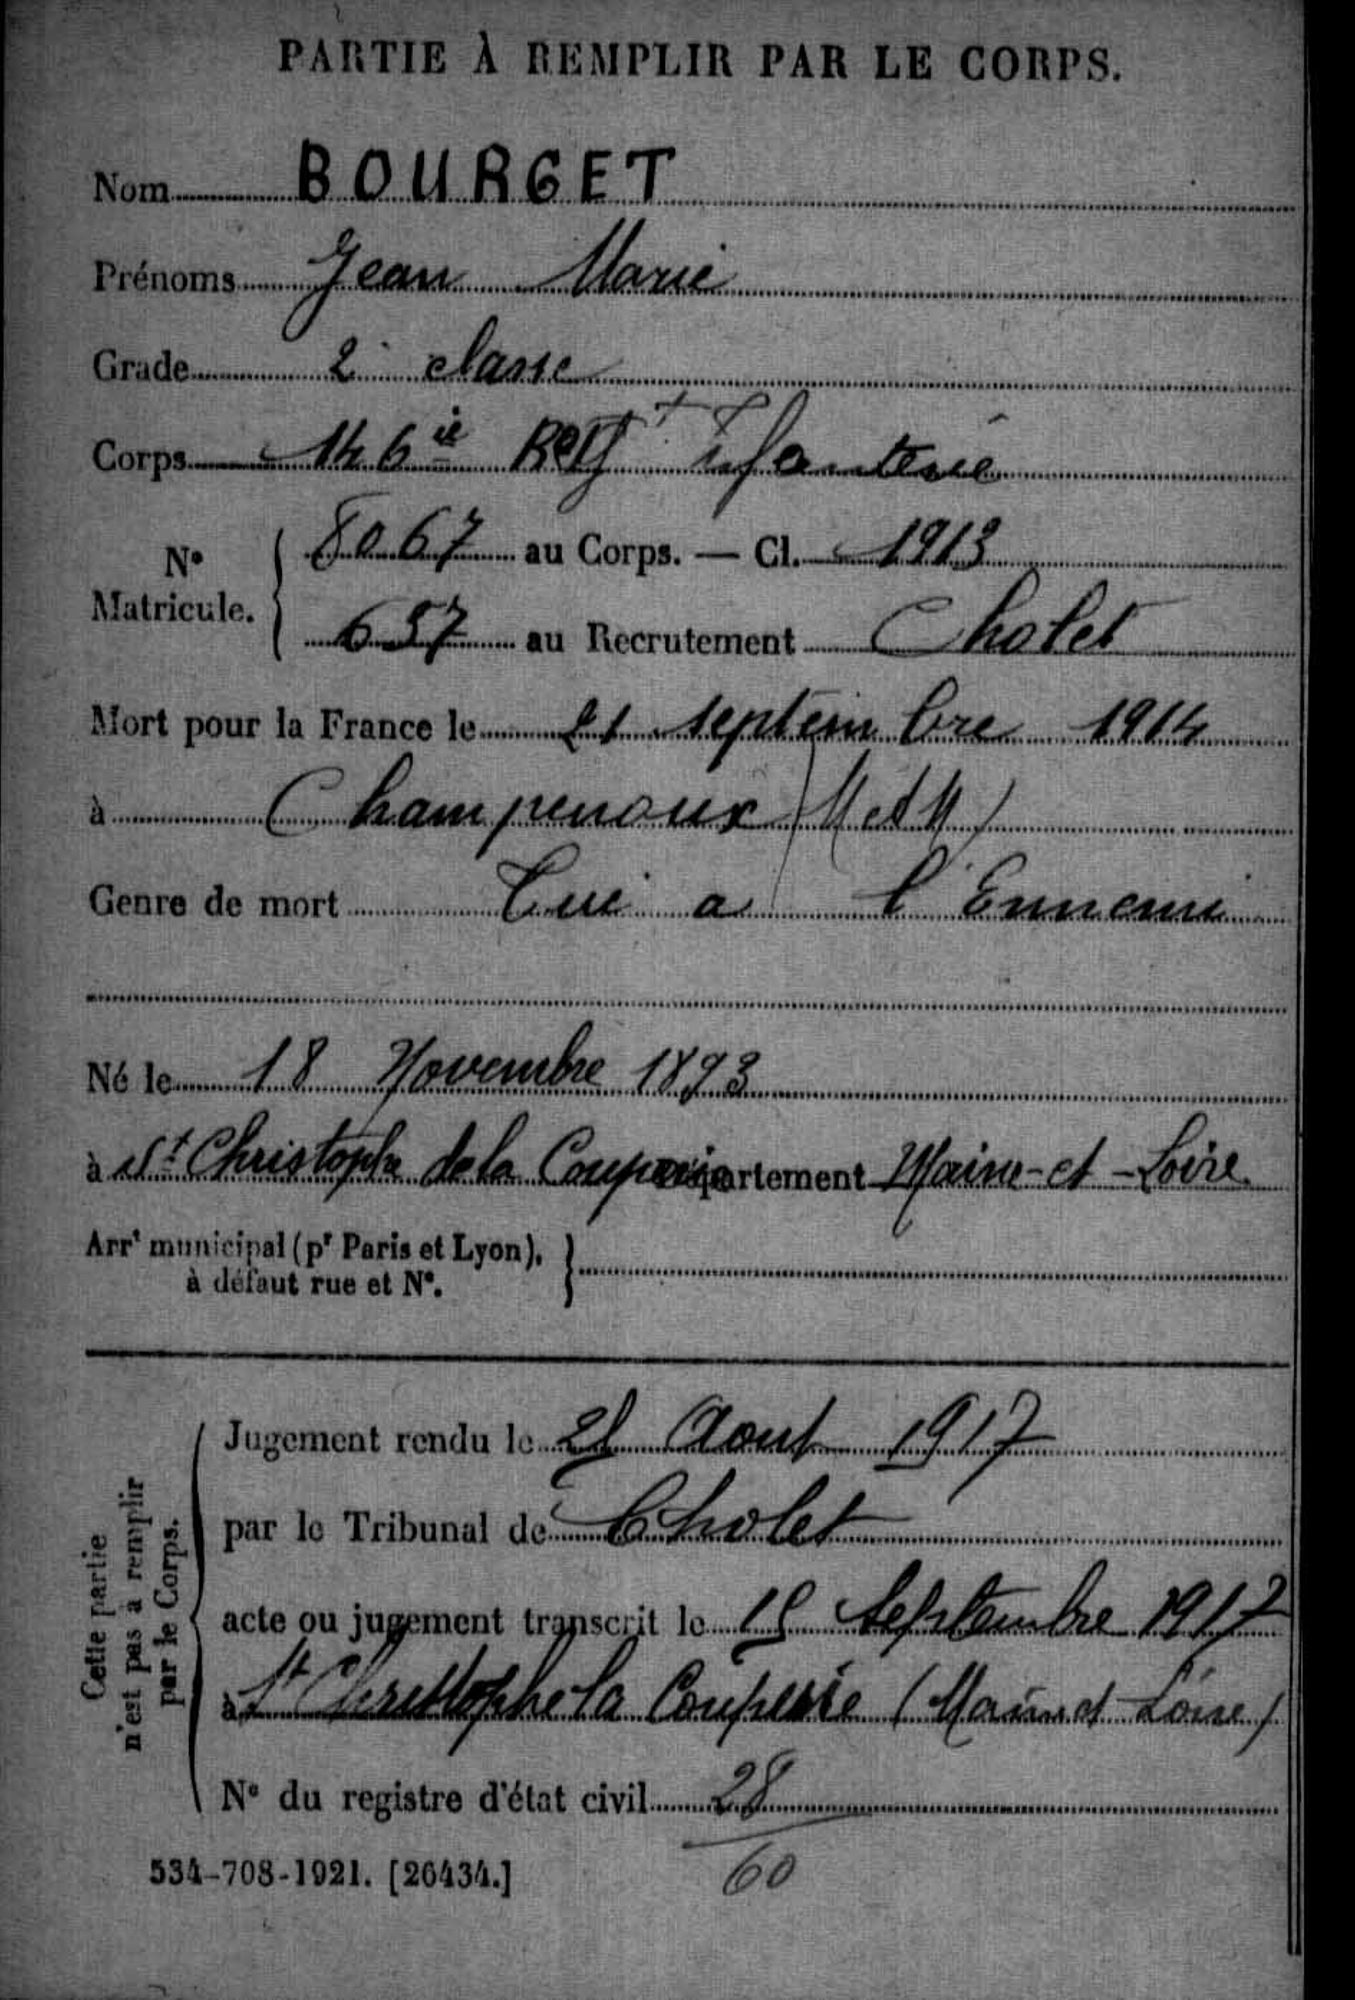 PARTIE À REMPLIR PAR LE CORPS.
Nom BOURGET
Prénoms Jean Marie
Grade 2e classe
Corps 146ie Regt infanterie
No Matricule. 8067 au Corps. — Cl. 1913
657 au Recrutement Cholet
Mort pour la France le 21 septembre 1914
à Champenoux (M et M)
Genre de mort Tué a l'Ennemi
Né le 18 Novembre 1893
à St Christophe de la Couperie Département Maine-et-Loire
Arrt municipal (pr Paris et Lyon),
à défaut rue et No.
Cette partie
n'est pas à remplir
par le Corps.
Jugement rendu le 21 Aout 1917
par le Tribunal de Cholet
acte ou jugement transcrit le 15 Septembre 1917
à St Christophe la Couperie (Maine et Loire)
No du registre d'état civil 28
60
534-708-1921. [26434.]